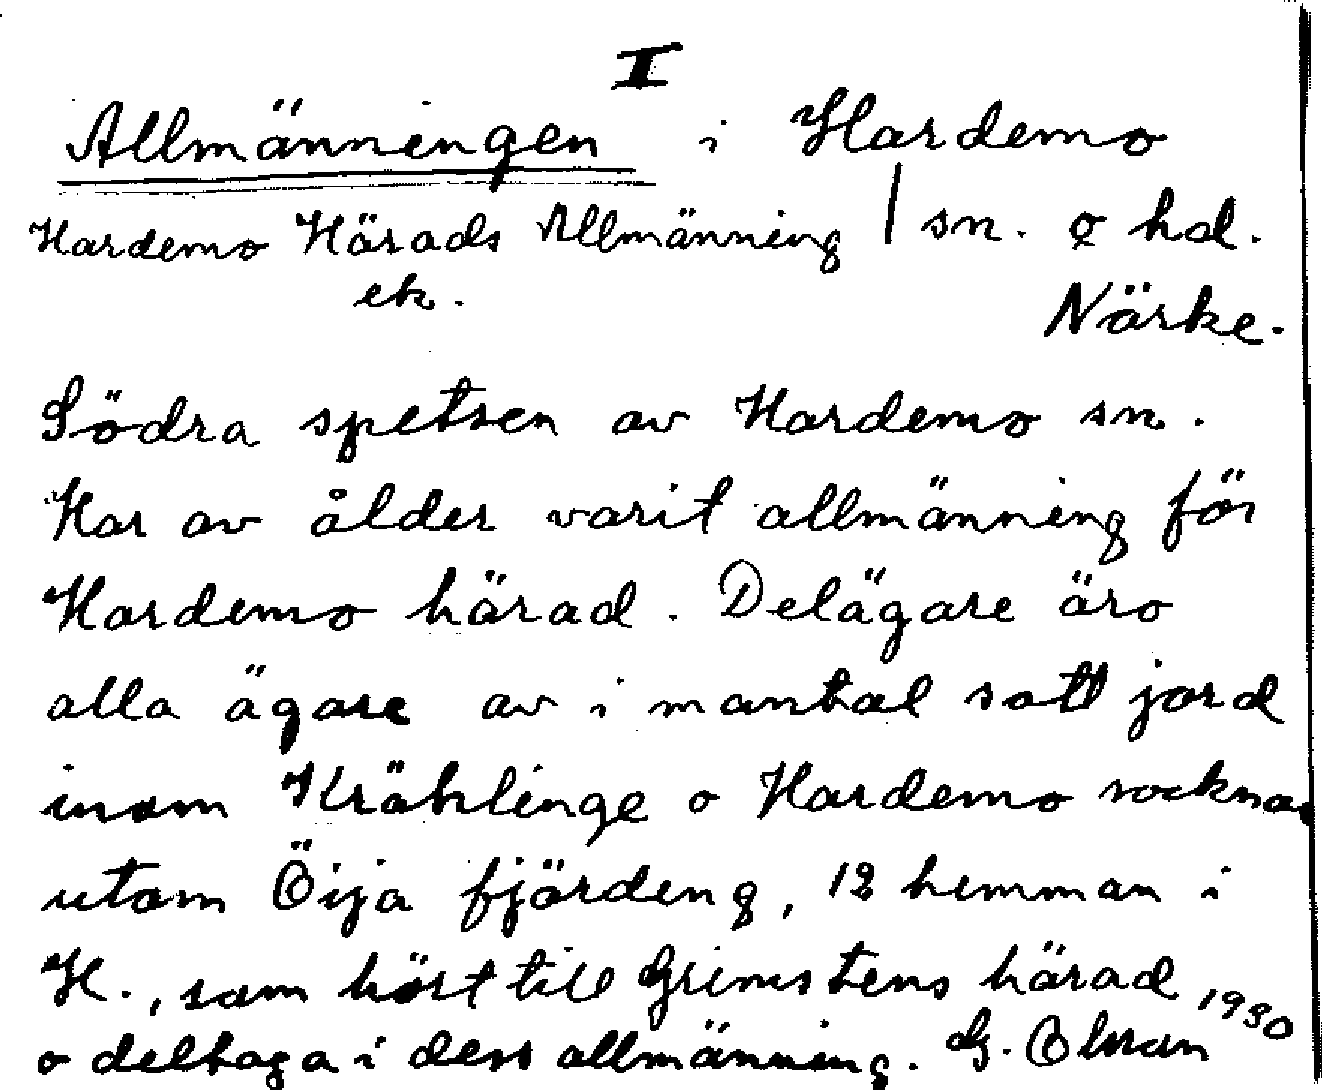 I
Allmänningen i Hardemo
Hardemo Härads Allmänning | sn. o hd.
ek.
Närke.
Södra spetsen av Hardemo sn.
Har av ålder varit allmänning för
Hardemo härad. Delägare äro
alla ägare av i mantal satt jord
inom Kräklinge o Hardemo socknar
utom Öija fjärdeng, 12 hemman i
H., som hört till Grimstens härad
o deltaga i dess allmänning. G. Olsson 1930